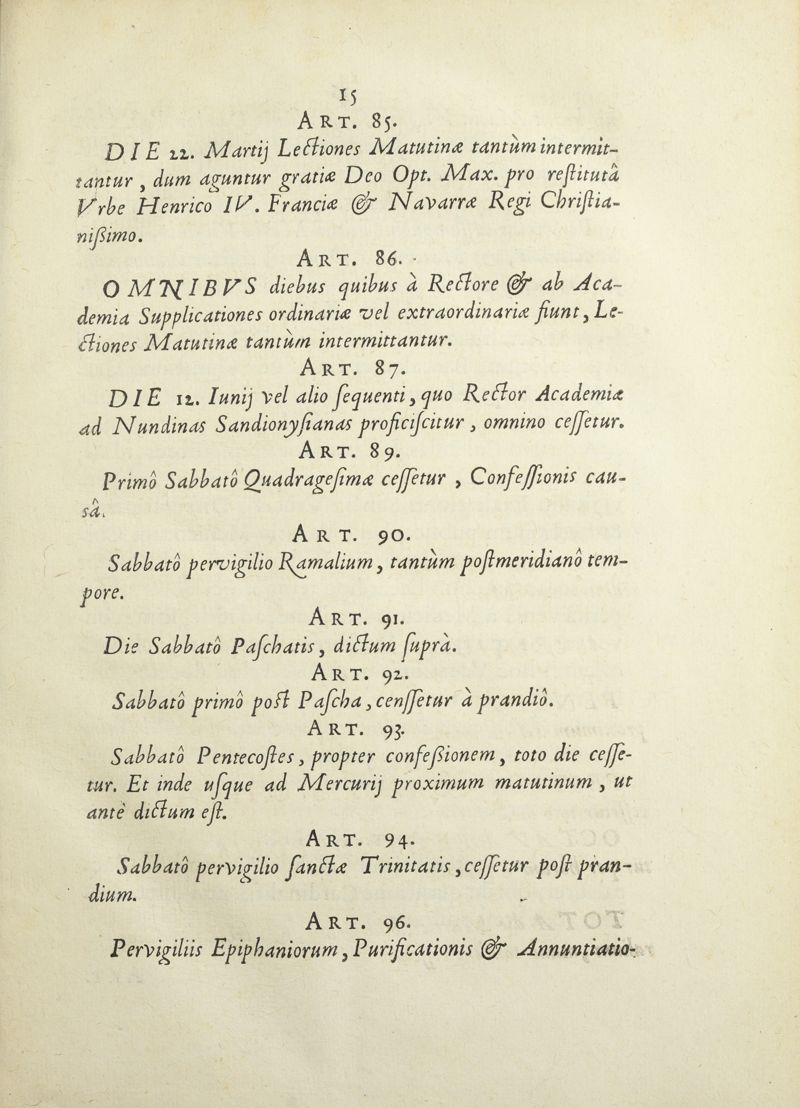 15
ART. 85.
DIE 22. Martij Lectiones Matutinæ tantùm intermit-
tantur, dum aguntur gratiæ Deo Opt. Max. pro reſtitutâ
Vrbe Henrico IV. Franciæ & Navarræ Regi Chriſtia-
niſsimo.
ART. 86.
OMNIBVS diebus quibus à Rectore & ab Aca-
demia Supplicationes ordinariæ vel extraordinariæ fiunt, Le-
ctiones Matutinæ tantùm intermittantur.
ART. 87.
DIE 12. Iunij vel alio ſequenti, quo Rector Academiæ
ad Nundinas Sandionyſianas proficiſcitur, omnino ceſſetur.
ART. 89.
Primô Sabbatô Quadrageſimæ ceſſetur, Confeſſionis cau-
sâ.
ART. 90.
Sabbatô pervigilio Ramalium, tantùm poſtmeridianô tem-
pore.
ART. 91.
Die Sabbatô Paſchatis, dictum ſuprà.
ART. 92.
Sabbatô primô poſt Paſcha, cenſſetur à prandiô.
ART. 93.
Sabbatô Pentecoſtes, propter confeſsionem, toto die ceſſe-
tur. Et inde uſque ad Mercurij proximum matutinum, ut
antè dictum eſt.
ART. 94.
Sabbatô pervigilio ſanctæ Trinitatis, ceſſetur poſt pran-
dium.
ART. 96.
Pervigiliis Epiphaniorum, Purificationis & Annuntiatio-